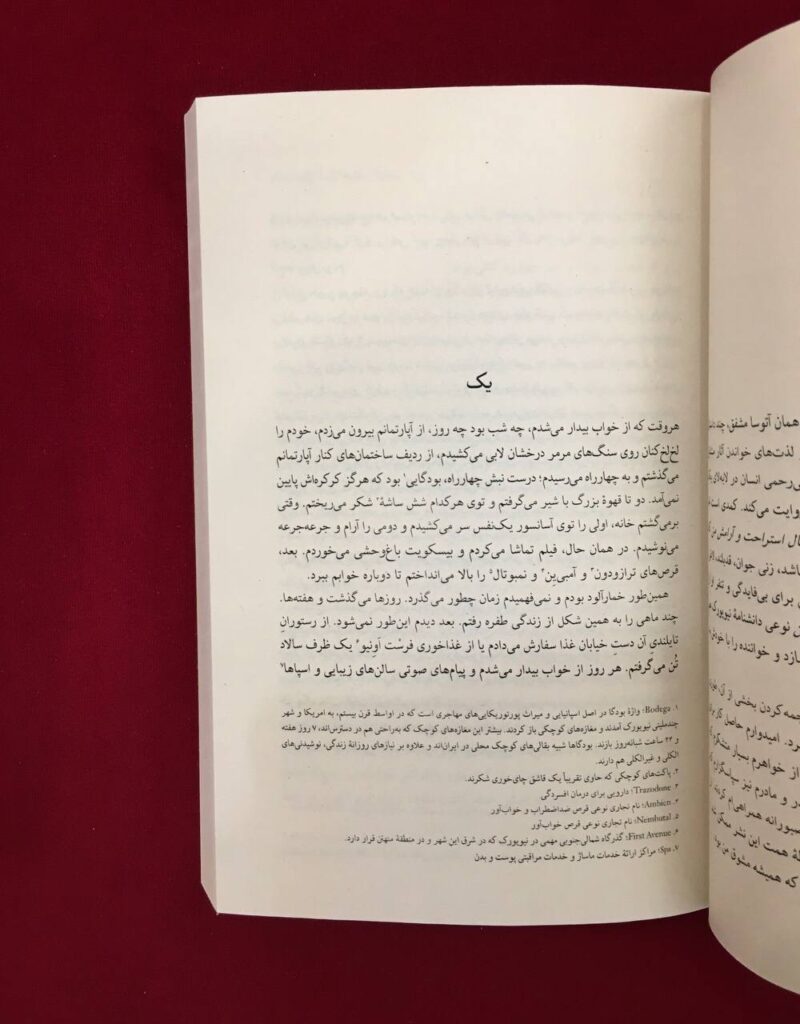 همان آتوسا مشفق، چند
لذت‌های خواندن آثار
بی‌رحمی انسان در لابه‌لای
روایت می‌کند. کمدی است
استراحت و آرامش من
باشد، زنی جوان، قدبلند،
برای بی‌فایدگی و تنفر
نوعی دانشنامهٔ نیویورک
و خواننده را با خودش
کردن بخشی از آن،
امیدوارم حاصل کار
از خواهرم بسیار
و مادرم نیز
صبورانه همراهی‌ام
همت این نشر
که همیشه مشوق من
یک
هروقت که از خواب بیدار می‌شدم، چه شب بود چه روز، از آپارتمانم بیرون می‌زدم، خودم را
لخ‌لخ‌کنان روی سنگ‌های مرمر درخشان لابی می‌کشیدم، از ردیف ساختمان‌های کنار آپارتمانم
می‌گذشتم و به چهارراه می‌رسیدم؛ درست نبش چهارراه، بودگایی۱ بود که هرگز کرکره‌اش پایین
نمی‌آمد. دو تا قهوهٔ بزرگ با شیر می‌گرفتم و توی هرکدام شش ساشهٔ۲ شکر می‌ریختم. وقتی
برمی‌گشتم خانه، اولی را توی آسانسور یک‌نفس سر می‌کشیدم و دومی را آرام و جرعه‌جرعه
می‌نوشیدم. در همان حال، فیلم تماشا می‌کردم و بیسکویت باغ‌وحشی می‌خوردم. بعد،
قرص‌های ترازودون۳ و آمبی‌ین۴ و نمبوتال۵ را بالا می‌انداختم تا دوباره خوابم ببرد.
همین‌طور خمارآلود بودم و نمی‌فهمیدم زمان چطور می‌گذرد. روزها می‌گذشت و هفته‌ها.
چند ماهی را به همین شکل از زندگی طفره رفتم. بعد دیدم این‌طور نمی‌شود. از رستورانِ
تایلندیِ آن دستِ خیابان غذا سفارش می‌دادم یا از غذاخوری فرشت اَونیو۶ یک ظرف سالاد
تُن می‌گرفتم. هر روز از خواب بیدار می‌شدم و پیام‌های صوتی سالن‌های زیبایی و اسپاها۷
۱. Bodega؛ واژهٔ بودگا در اصل اسپانیایی و میراث پورتوریکایی‌های مهاجری است که در اواسط قرن بیستم، به امریکا و شهر
چندملیتی نیویورک آمدند و مغازه‌های کوچکی باز کردند. بیشتر این مغازه‌های کوچک که به‌راحتی هم در دسترس‌اند، ۷ روز هفته
و ۲۴ ساعت شبانه‌روز بازند. بودگاها شبیه بقالی‌های کوچک محلی در ایران‌اند و علاوه بر نیازهای روزانهٔ زندگی، نوشیدنی‌های
الکلی و غیرالکلی هم دارند.
۲. پاکت‌های کوچکی که حاوی تقریباً یک قاشق چای‌خوری شکرند.
۳. Trazodone؛ دارویی برای درمان افسردگی
۴. Ambien؛ نام تجاری نوعی قرص ضداضطراب و خواب‌آور
۵. Nembutal؛ نام تجاری نوعی قرص خواب‌آور
۶. First Avenue؛ گذرگاه شمالی‌جنوبی مهمی در نیویورک که در شرق این شهر و در منطقهٔ منهتن قرار دارد.
۷. Spa؛ مراکز ارائهٔ خدمات ماساژ و خدمات مراقبتی پوست و بدن